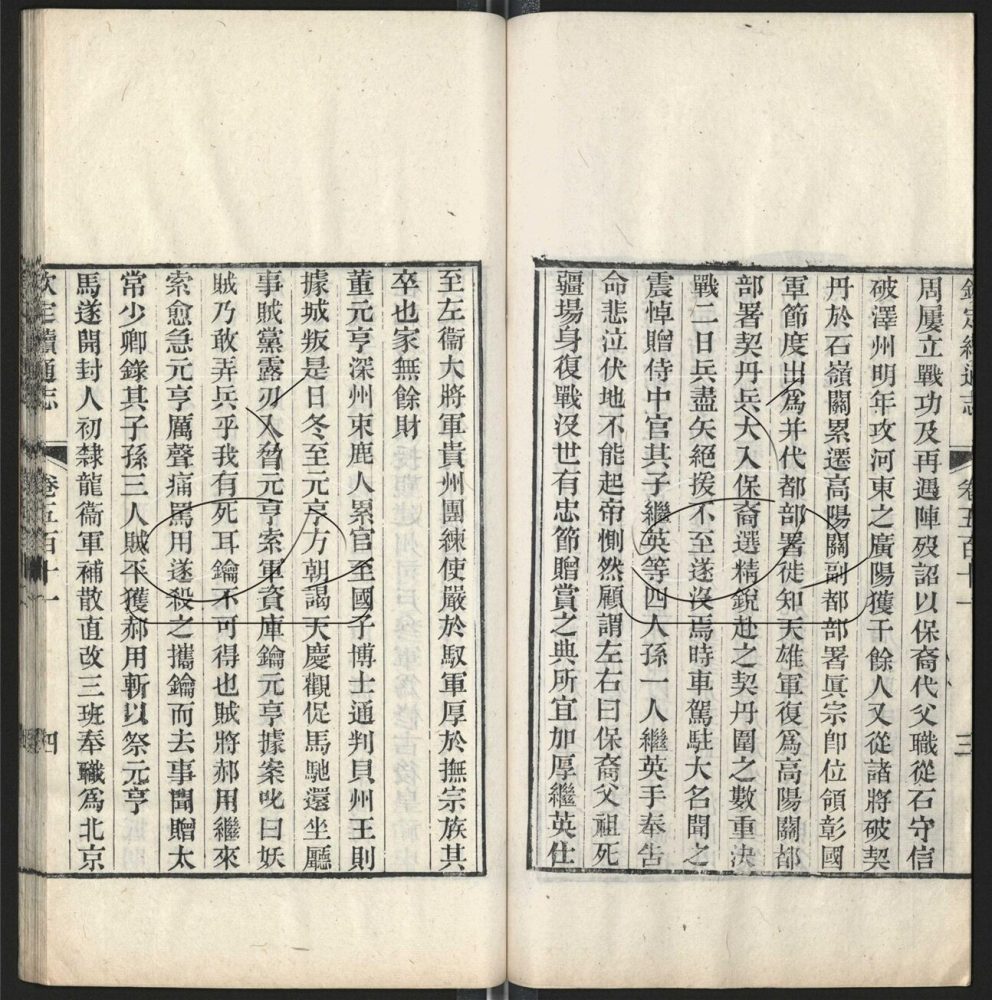 欽定續通志 卷五百十一 三
周屢立戰功及再遇陣歿詔以保裔代父職從石守信
破澤州明年攻河東之廣陽獲千餘人又從諸將破契
丹於石嶺關累遷高陽關副都部署眞宗卽位領彰國
軍節度出爲并代都部署徙知天雄軍復爲高陽關都
部署契丹兵大入保裔選精銳赴之契丹圍之數重決
戰二日兵盡矢絕援不至遂沒焉時車駕駐大名聞之
震悼贈侍中官其子繼英等四人孫一人繼英手奉告
命悲泣伏地不能起帝惻然顧謂左右曰保裔父祖死
疆場身復戰沒世有忠節贈賞之典所宜加厚繼英仕
至左衞大將軍貴州團練使嚴於馭軍厚於撫宗族其
卒也家無餘財
董元亨深州束鹿人累官至國子博士通判貝州王則
據城叛是日冬至元亨方朝謁天慶觀促馬馳還坐廳
事賊黨露刃入脅元亨索軍資庫鑰元亨據案叱曰妖
賊乃敢弄兵乎我有死耳鑰不可得也賊將郝用繼來
索愈急元亨厲聲痛罵用遂殺之攜鑰而去事聞贈太
常少卿錄其子孫三人賊平獲郝用斬以祭元亨
馬遂開封人初隸龍衞軍補散直改三班奉職爲北京
欽定續通志 卷五百十一 四